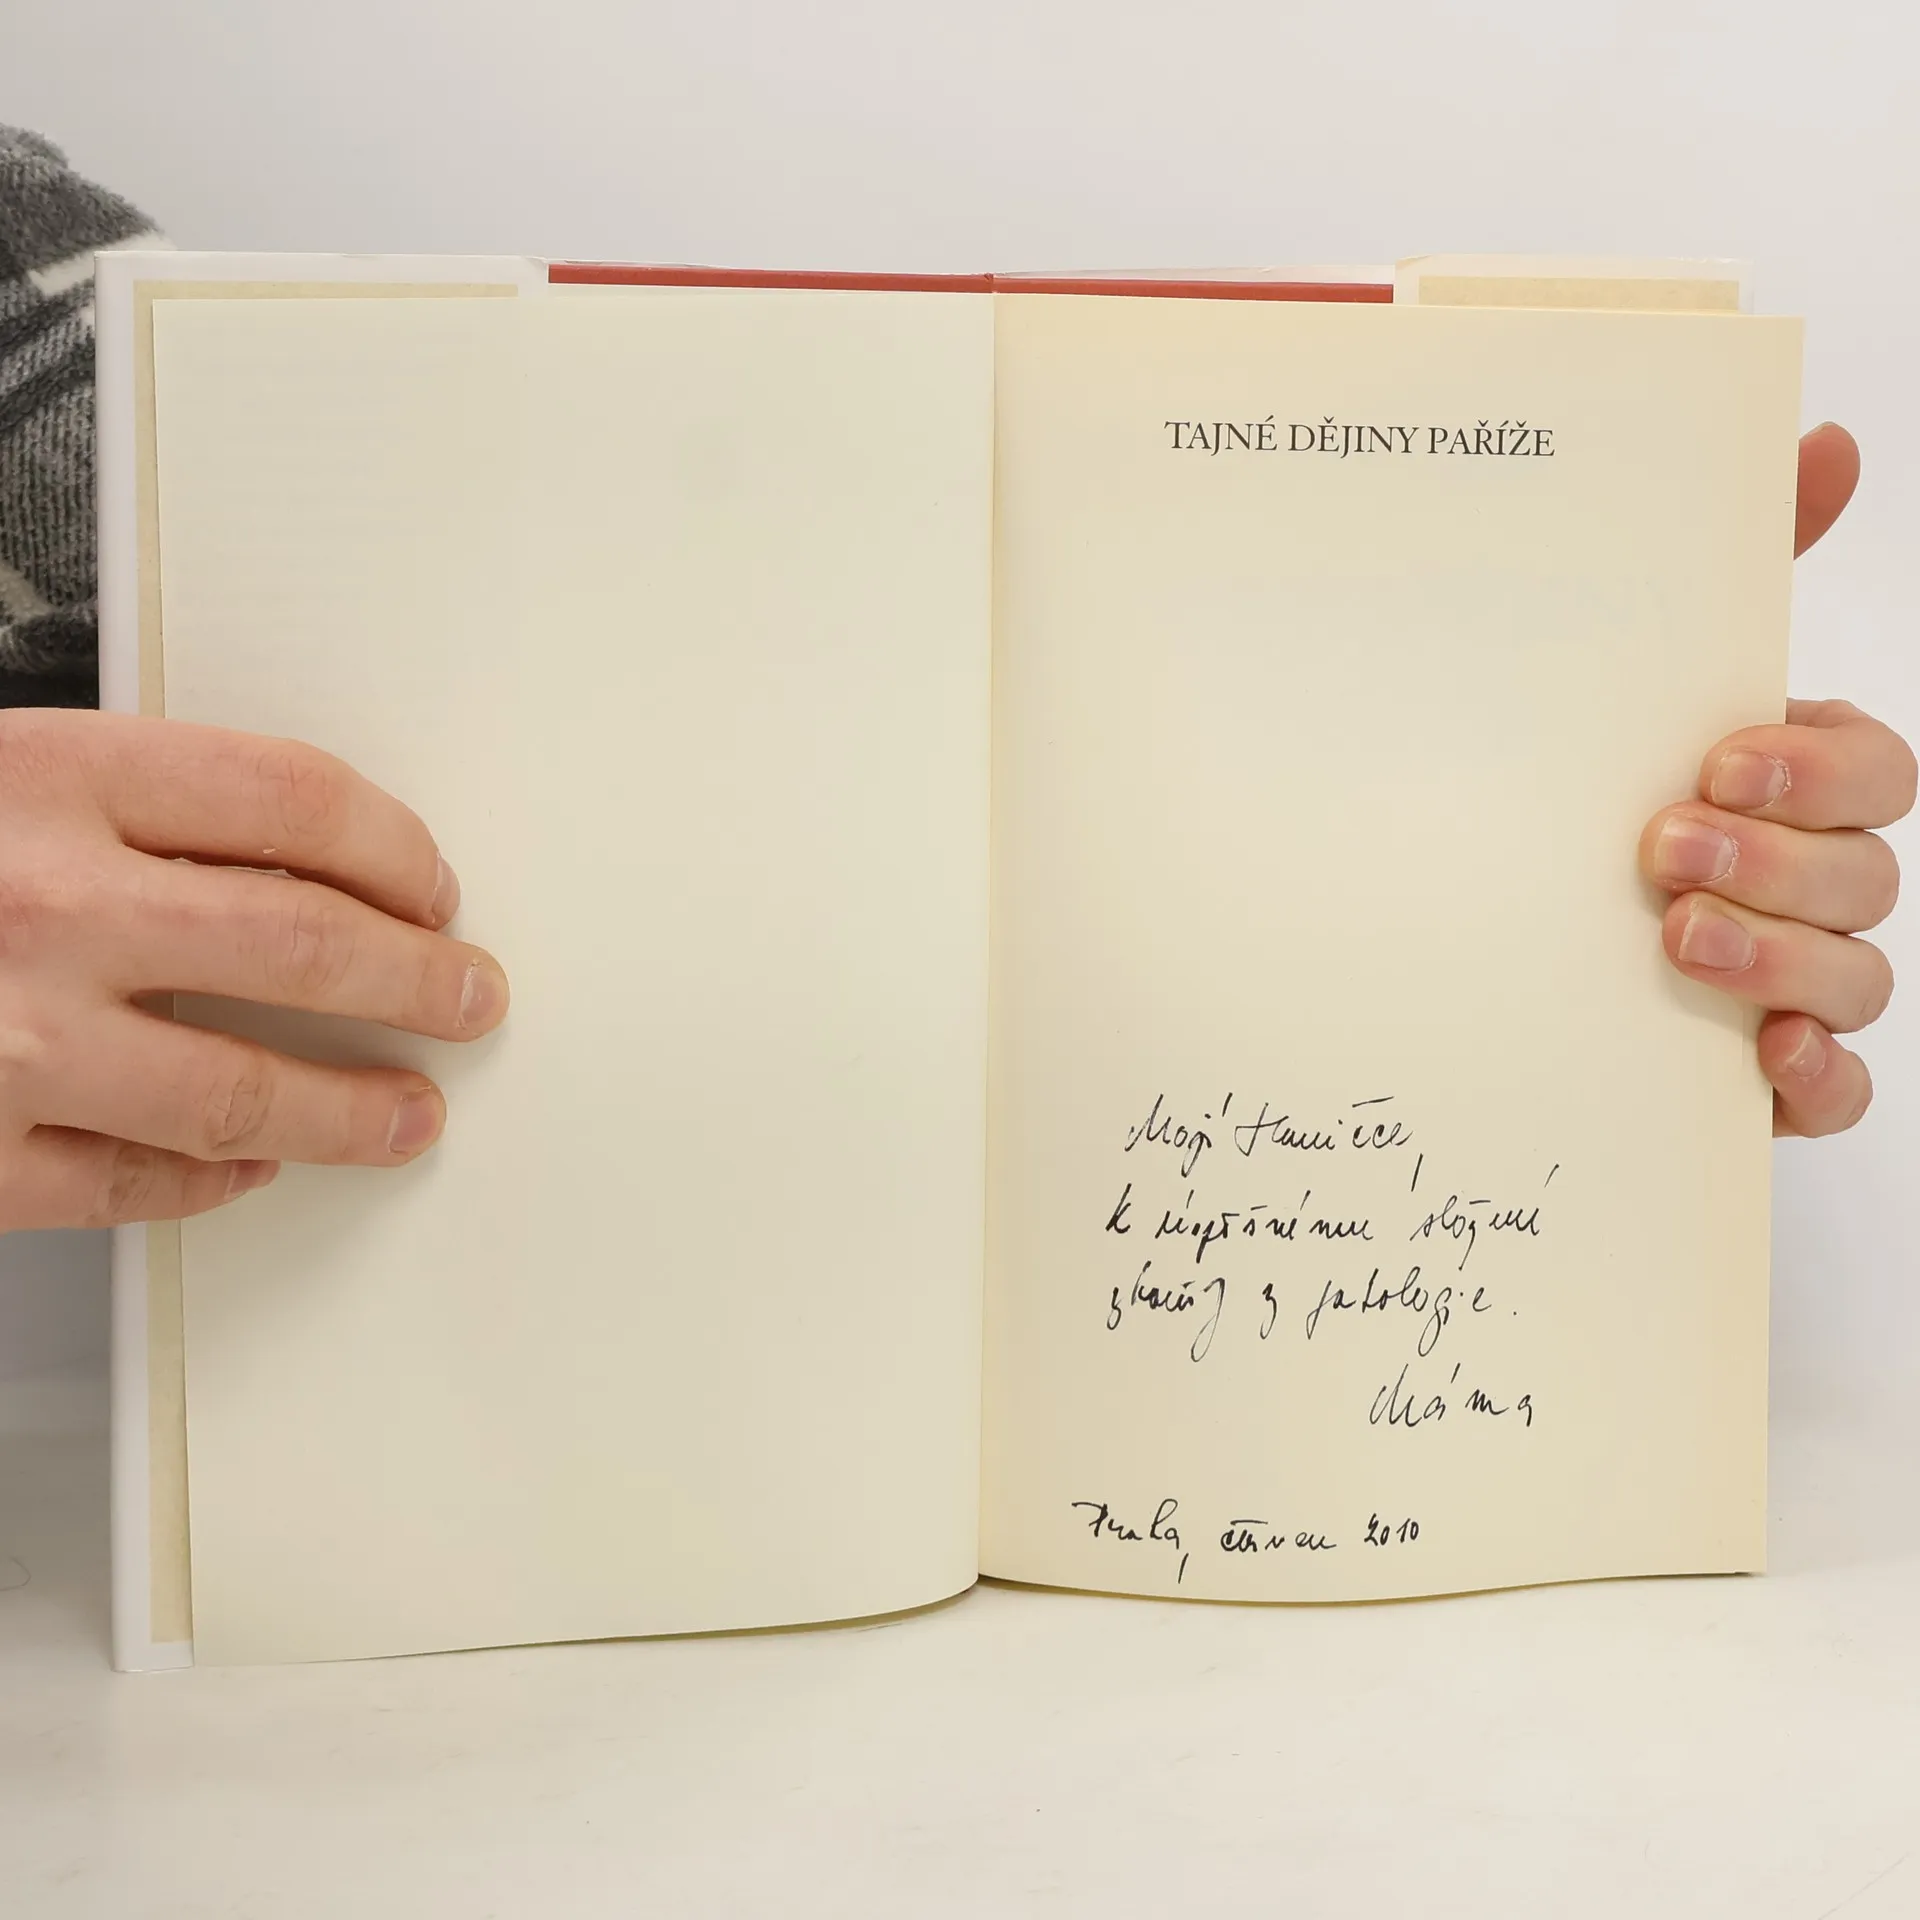 TAJNÉ DĚJINY PAŘÍŽE
Mojí Haničce,
k úspěšnému složení
zkoušky z patologie.
Máma
Praha, červen 2010